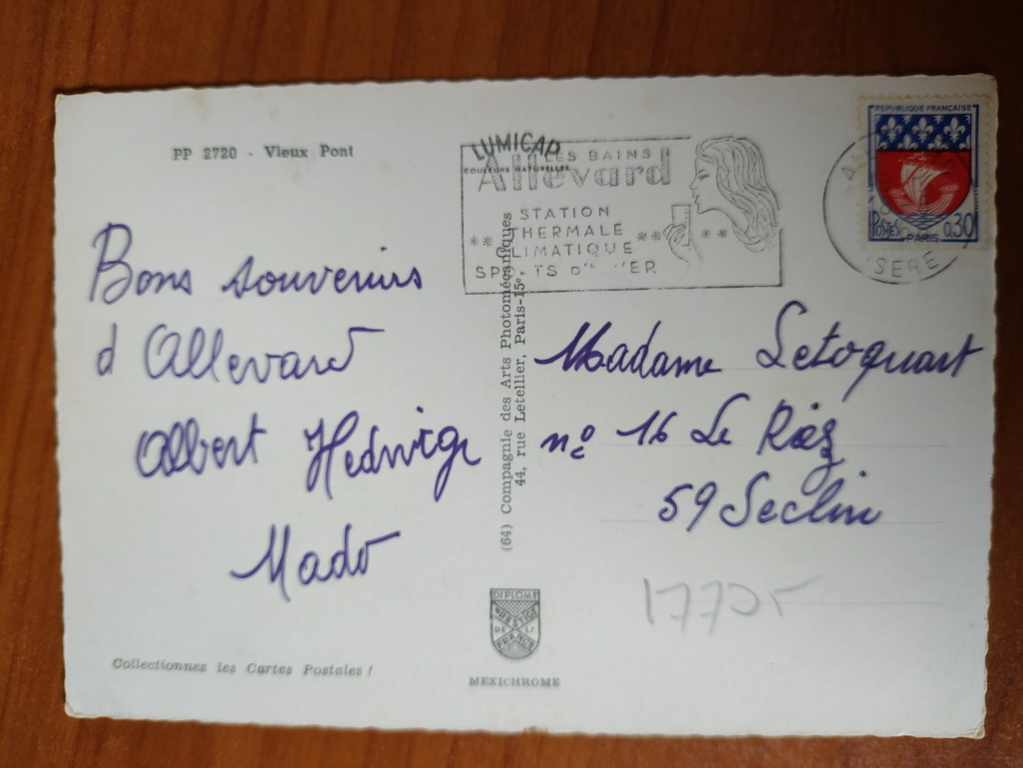 PP 2720 - Vieux Pont
Bons souvenirs
d Allevard
Albert Hedwige
Mado
Collectionnez les Cartes Postales !
LUMICAP
COULEURS NATURELLES
LES BAINS
Allevard
STATION
THERMALE
CLIMATIQUE
SPORTS D'HIVER
REPUBLIQUE FRANÇAISE
POSTES
0,30
PARIS
ISERE
(64) Compagnie des Arts Photomécaniques
44, rue Letellier, Paris-15e
Madame Letoquart
n° 16 Le Riez
59 Seclin
17705
DIPLOME
PRESTIGE
DE LA
FRANCE
MEXICHROME